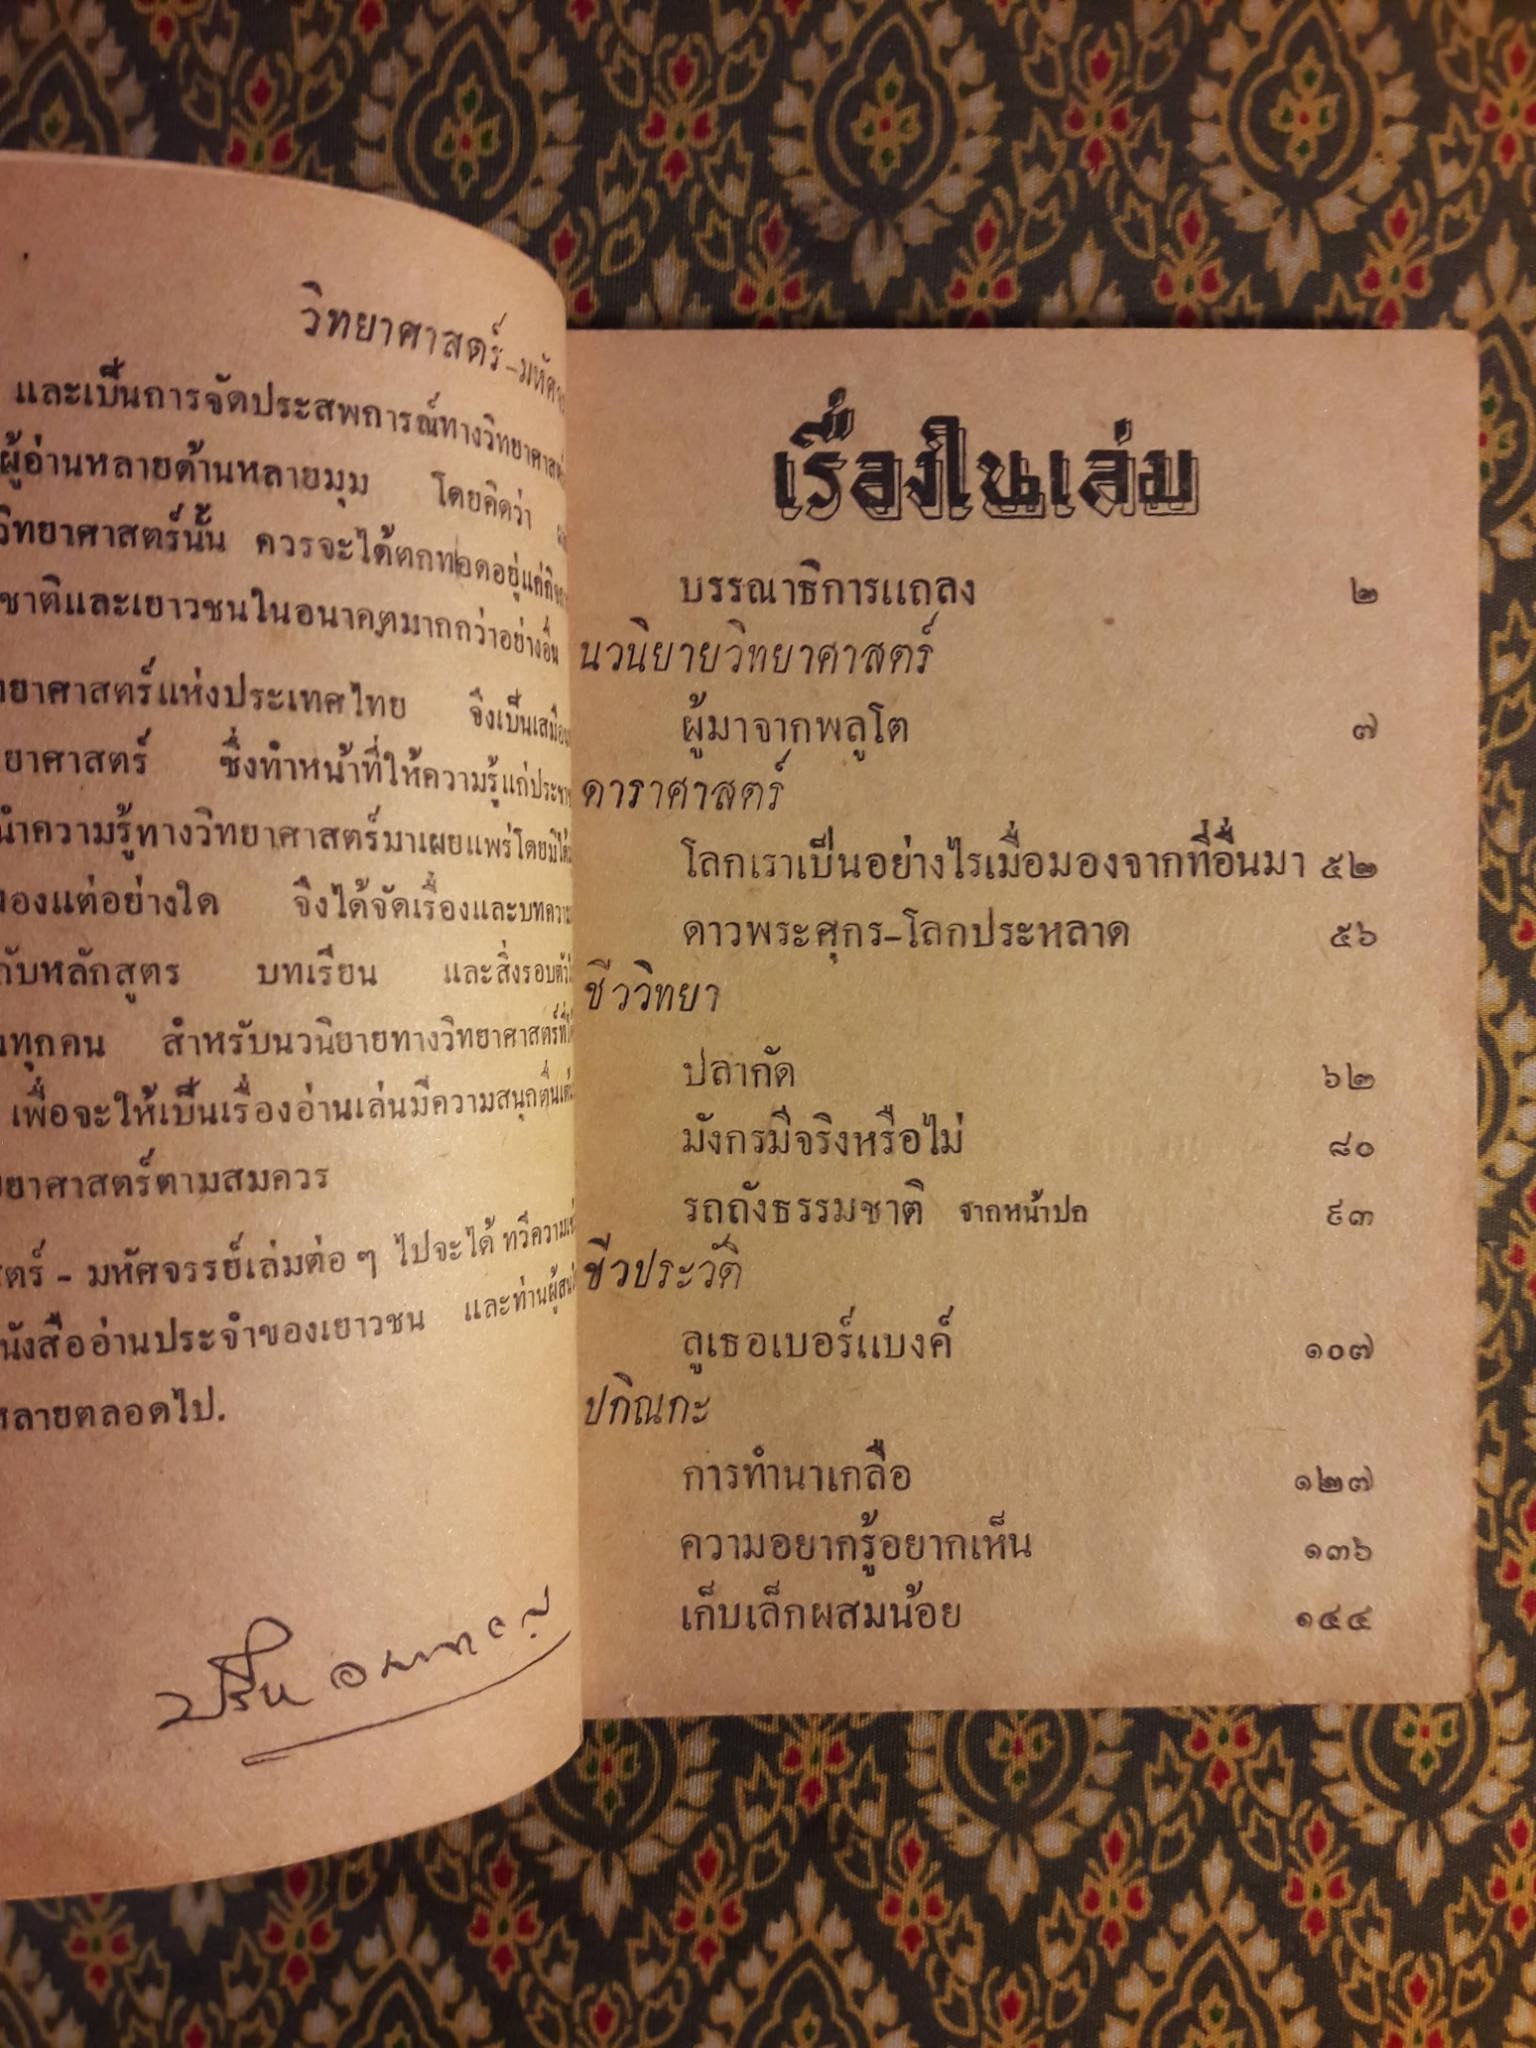 วิทยาศาสตร์-มหัศ
และเป็นการจัดประสพการณ์ทางวิทยาศาสตร์
ผู้อ่านหลายด้านหลายมุม โดยคิดว่า
วิทยาศาสตร์นั้น ควรจะได้ตกทอดอยู่แก่
ชาติและเยาวชนในอนาคตมากกว่าอย่างอื่น
ทยาศาสตร์แห่งประเทศไทย จึงเป็นเสมือน
ยาศาสตร์ ซึ่งทำหน้าที่ให้ความรู้แก่ประชา
นำความรู้ทางวิทยาศาสตร์มาเผยแพร่โดยมิได้
ของแต่อย่างใด จึงได้จัดเรื่องและบทความ
กับหลักสูตร บทเรียน และสิ่งรอบตัว
ทุกคน สำหรับนวนิยายทางวิทยาศาสตร์ที่
เพื่อจะให้เป็นเรื่องอ่านเล่นมีความสนุกตื่นเต้น
ยาศาสตร์ตามสมควร
ตร์ - มหัศจรรย์เล่มต่อๆ ไปจะได้ ทวีความ
นังสืออ่านประจำของเยาวชน และท่านผู้สน
หลายตลอดไป.
เรื่องในเล่ม
บรรณาธิการแถลง ๒
นวนิยายวิทยาศาสตร์
ผู้มาจากพลูโต ๗
ดาราศาสตร์
โลกเราเป็นอย่างไรเมื่อมองจากที่อื่นมา ๕๒
ดาวพระศุกร-โลกประหลาด ๕๖
ชีววิทยา
ปลากัด ๖๒
มังกรมีจริงหรือไม่ ๘๐
รถถังธรรมชาติ จากหน้าปก ๙๓
ชีวประวัติ
ลูเธอเบอร์แบงค์ ๑๐๗
ปกิณกะ
การทำนาเกลือ ๑๒๗
ความอยากรู้อยากเห็น ๑๓๖
เก็บเล็กผสมน้อย ๑๔๔